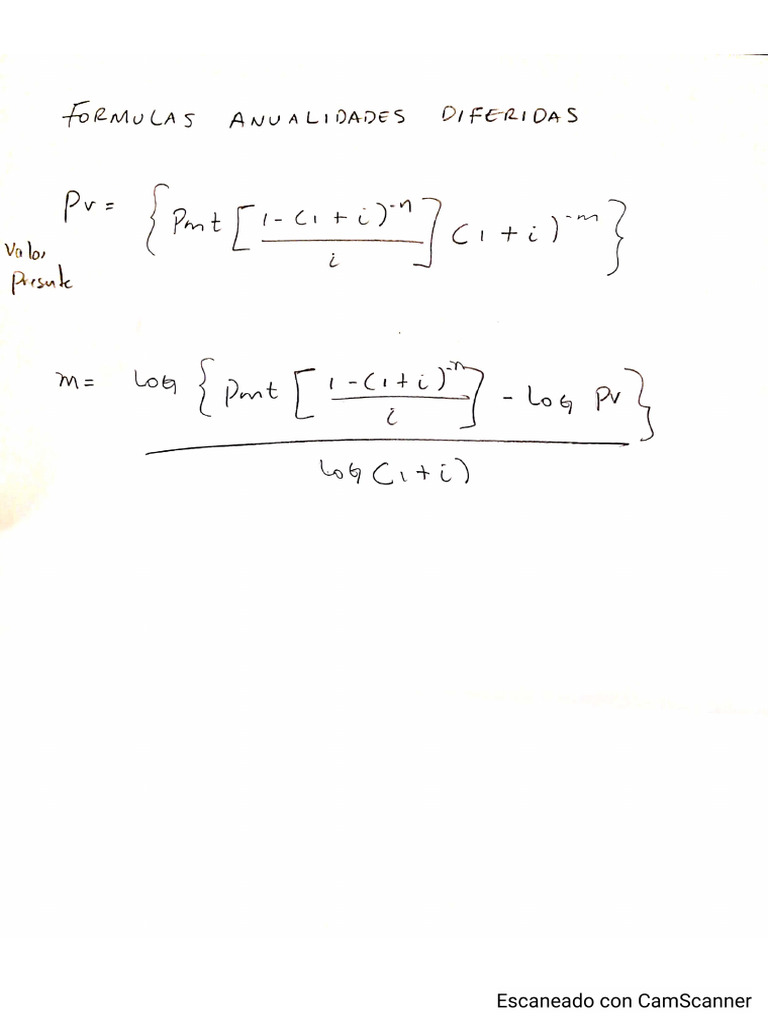 FORMULAS ANUALIDADES DIFERIDAS
Pv = { Pmt [ 1-(1+i)^-n / i ] (1+i)^-m }
Valor
Presente
m = LOG { Pmt [ 1-(1+i)^-n / i ] - LOG PV } / LOG (1+i)
Escaneado con CamScanner